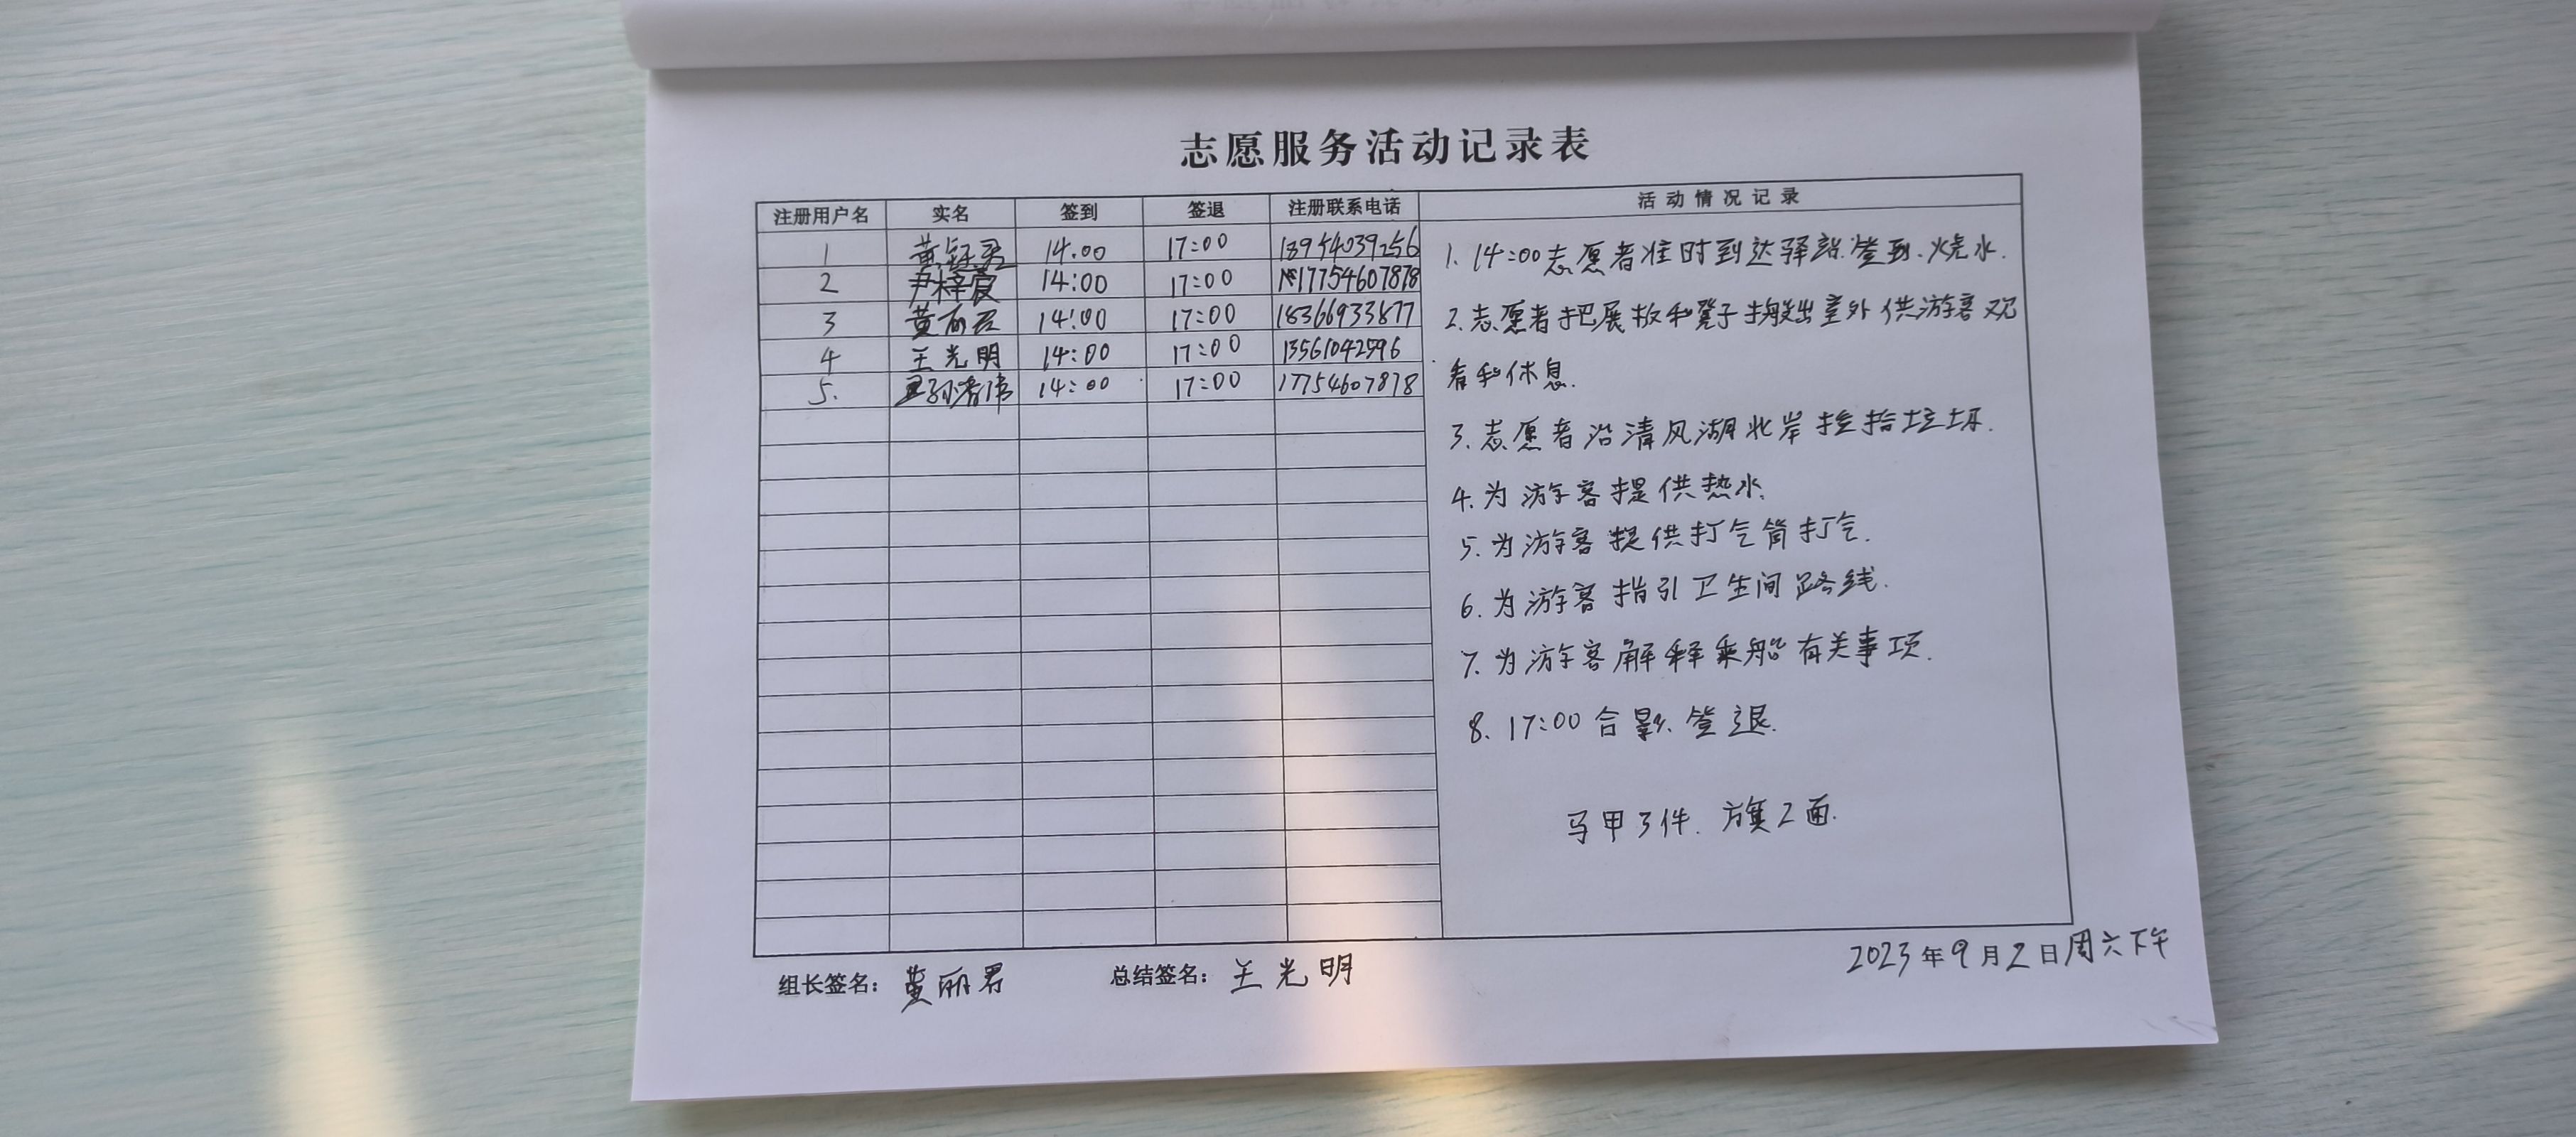 志愿服务活动记录表
注册用户名 实名 签到 签退 注册联系电话 活动情况记录
1 黄钰君 14:00 17:00 18954039256
2 尹梓萱 14:00 17:00 17754607878
3 黄丽君 14:00 17:00 18366933877
4 王光明 14:00 17:00 13561042596
5. 14:00 17:00 17754607878
1. 14:00志愿者准时到达驿站.签到.烧水.
2.志愿者把展板和凳子搬出室外供游客观
看和休息.
3.志愿者沿清风湖北岸捡拾垃圾.
4.为游客提供热水.
5.为游客提供打气筒打气.
6.为游客指引卫生间路线.
7.为游客解释乘船有关事项.
8. 17:00合影.签退.
马甲3件.旗2面.
组长签名：黄丽君 总结签名：王光明 2023年9月2日周六下午